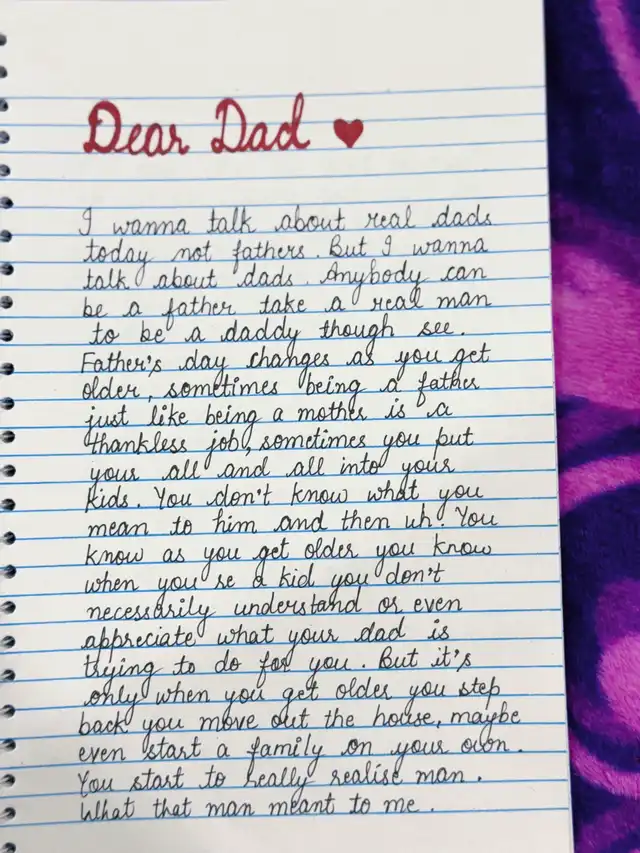 Dear Dad ♥
I wanna talk about real dads
today not fathers. But I wanna
talk about dads. Anybody can
be a father take a real man
to be a daddy though see.
Father's day changes as you get
older, sometimes being a father
just like being a mother is a
thankless job, sometimes you put
your all and all into your
kids. You don't know what you
mean to him and then uh. You
know as you get older you know
when you're a kid you don't
necessarily understand or even
appreciate what your dad is
trying to do for you. But it's
only when you get older you step
back you move out the house, maybe
even start a family on your own.
You start to really realise man.
What that man meant to me.